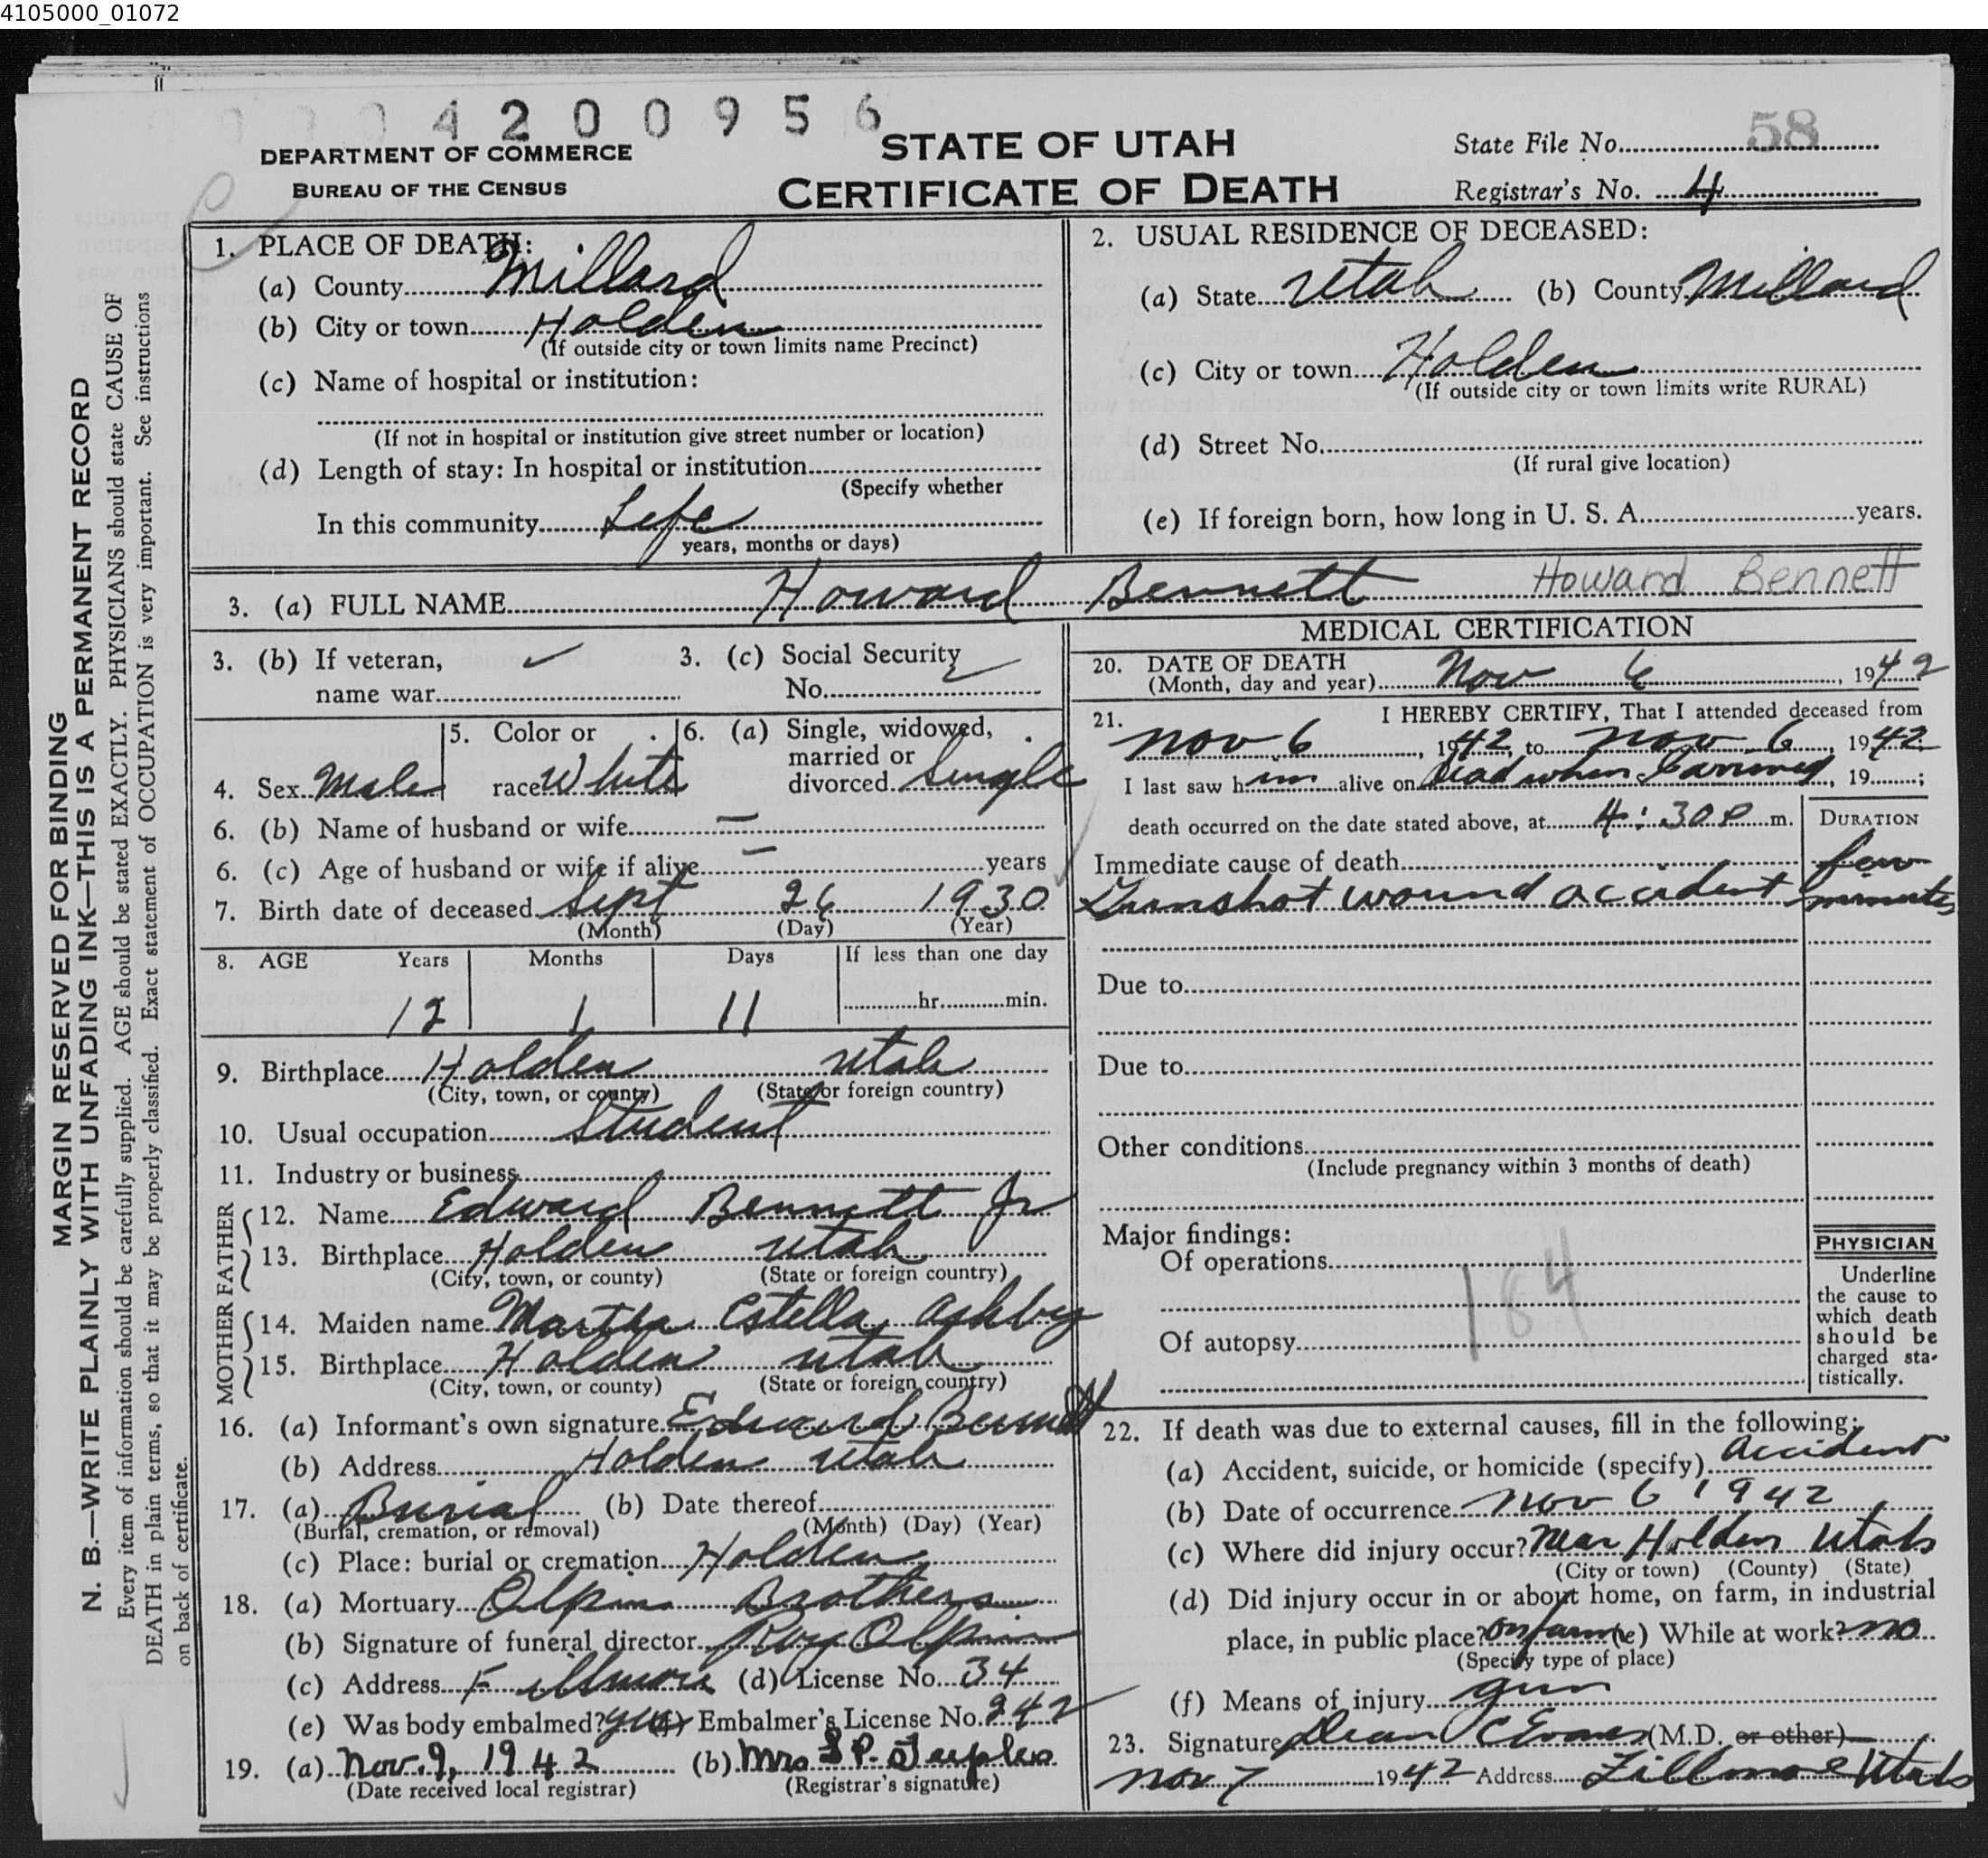 4105000_01072
4 2 0 0 9 5 6
DEPARTMENT OF COMMERCE
BUREAU OF THE CENSUS
STATE OF UTAH
CERTIFICATE OF DEATH
State File No. 58
Registrar's No. 4
MARGIN RESERVED FOR BINDING
N. B.—WRITE PLAINLY WITH UNFADING INK—THIS IS A PERMANENT RECORD
Every item of information should be carefully supplied. AGE should be stated EXACTLY. PHYSICIANS should state CAUSE OF
DEATH in plain terms, so that it may be properly classified. Exact statement of OCCUPATION is very important. See instructions
on back of certificate.
1. PLACE OF DEATH:
(a) County Millard
(b) City or town Holden
(If outside city or town limits name Precinct)
(c) Name of hospital or institution:
(If not in hospital or institution give street number or location)
(d) Length of stay: In hospital or institution
(Specify whether
In this community Life
years, months or days)
2. USUAL RESIDENCE OF DECEASED:
(a) State Utah (b) County Millard
(c) City or town Holden
(If outside city or town limits write RURAL)
(d) Street No.
(If rural give location)
(e) If foreign born, how long in U. S. A. years.
3. (a) FULL NAME Howard Bennett Howard Bennett
3. (b) If veteran,
name war
3. (c) Social Security
No.
4. Sex Male
5. Color or
race White
6. (a) Single, widowed,
married or
divorced Single
6. (b) Name of husband or wife —
6. (c) Age of husband or wife if alive — years
7. Birth date of deceased Sept 26 1930
(Month) (Day) (Year)
8. AGE Years Months Days If less than one day
12 1 11 hr. min.
9. Birthplace Holden Utah
(City, town, or county) (State or foreign country)
10. Usual occupation Student
11. Industry or business
FATHER
12. Name Edward Bennett Jr
13. Birthplace Holden Utah
(City, town, or county) (State or foreign country)
MOTHER
14. Maiden name Martha Estella Ashby
15. Birthplace Holden Utah
(City, town, or county) (State or foreign country)
16. (a) Informant's own signature Edward Bennett
(b) Address Holden Utah
17. (a) Burial (b) Date thereof
(Burial, cremation, or removal) (Month) (Day) (Year)
(c) Place: burial or cremation Holden
18. (a) Mortuary Olpin Brothers
(b) Signature of funeral director Roy Olpin
(c) Address Fillmore (d) License No. 34
(e) Was body embalmed? yes (f) Embalmer's License No. 242
19. (a) Nov. 9, 1942 (b) Mrs S P. Teeples
(Date received local registrar) (Registrar's signature)
MEDICAL CERTIFICATION
20. DATE OF DEATH
(Month, day and year) Nov 6, 1942
21. I HEREBY CERTIFY, That I attended deceased from
Nov 6, 1942, to Nov 6, 1942
I last saw him alive on Dead when I arrived, 19 ;
death occurred on the date stated above, at 4:30 P m.
DURATION
Immediate cause of death
Gunshot wound accident few minutes
Due to
Due to
Other conditions
(Include pregnancy within 3 months of death)
Major findings:
Of operations
184
Of autopsy
PHYSICIAN
Underline
the cause to
which death
should be
charged sta-
tistically.
22. If death was due to external causes, fill in the following:
(a) Accident, suicide, or homicide (specify) Accident
(b) Date of occurrence Nov 6 1942
(c) Where did injury occur? Near Holden Utah
(City or town) (County) (State)
(d) Did injury occur in or about home, on farm, in industrial
place, in public place? On farm (e) While at work? no
(Specify type of place)
(f) Means of injury gun
23. Signature Dean C Evans (M.D. or other)
Nov 7 1942 Address Fillmore Utah